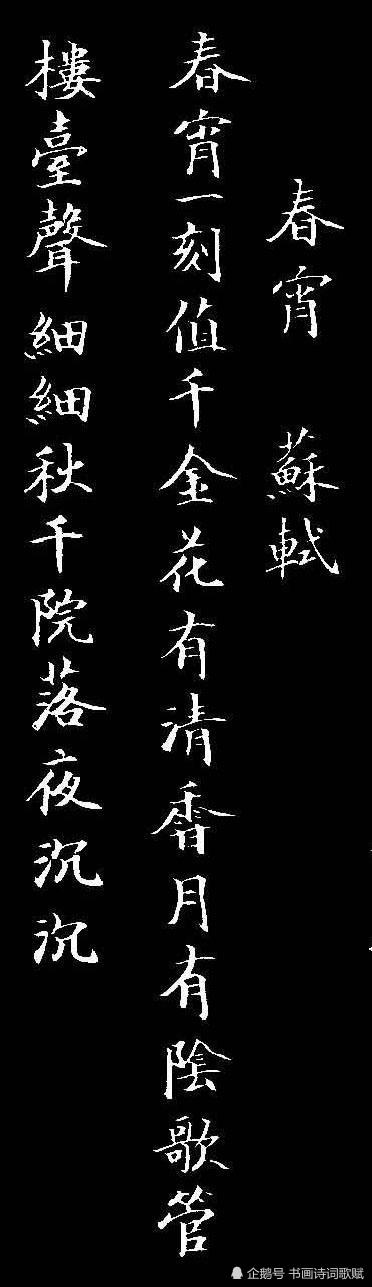 春宵 蘇軾
春宵一刻值千金花有清香月有陰歌管
樓臺聲細細秋千院落夜沉沉
企鹅号 书画诗词歌赋